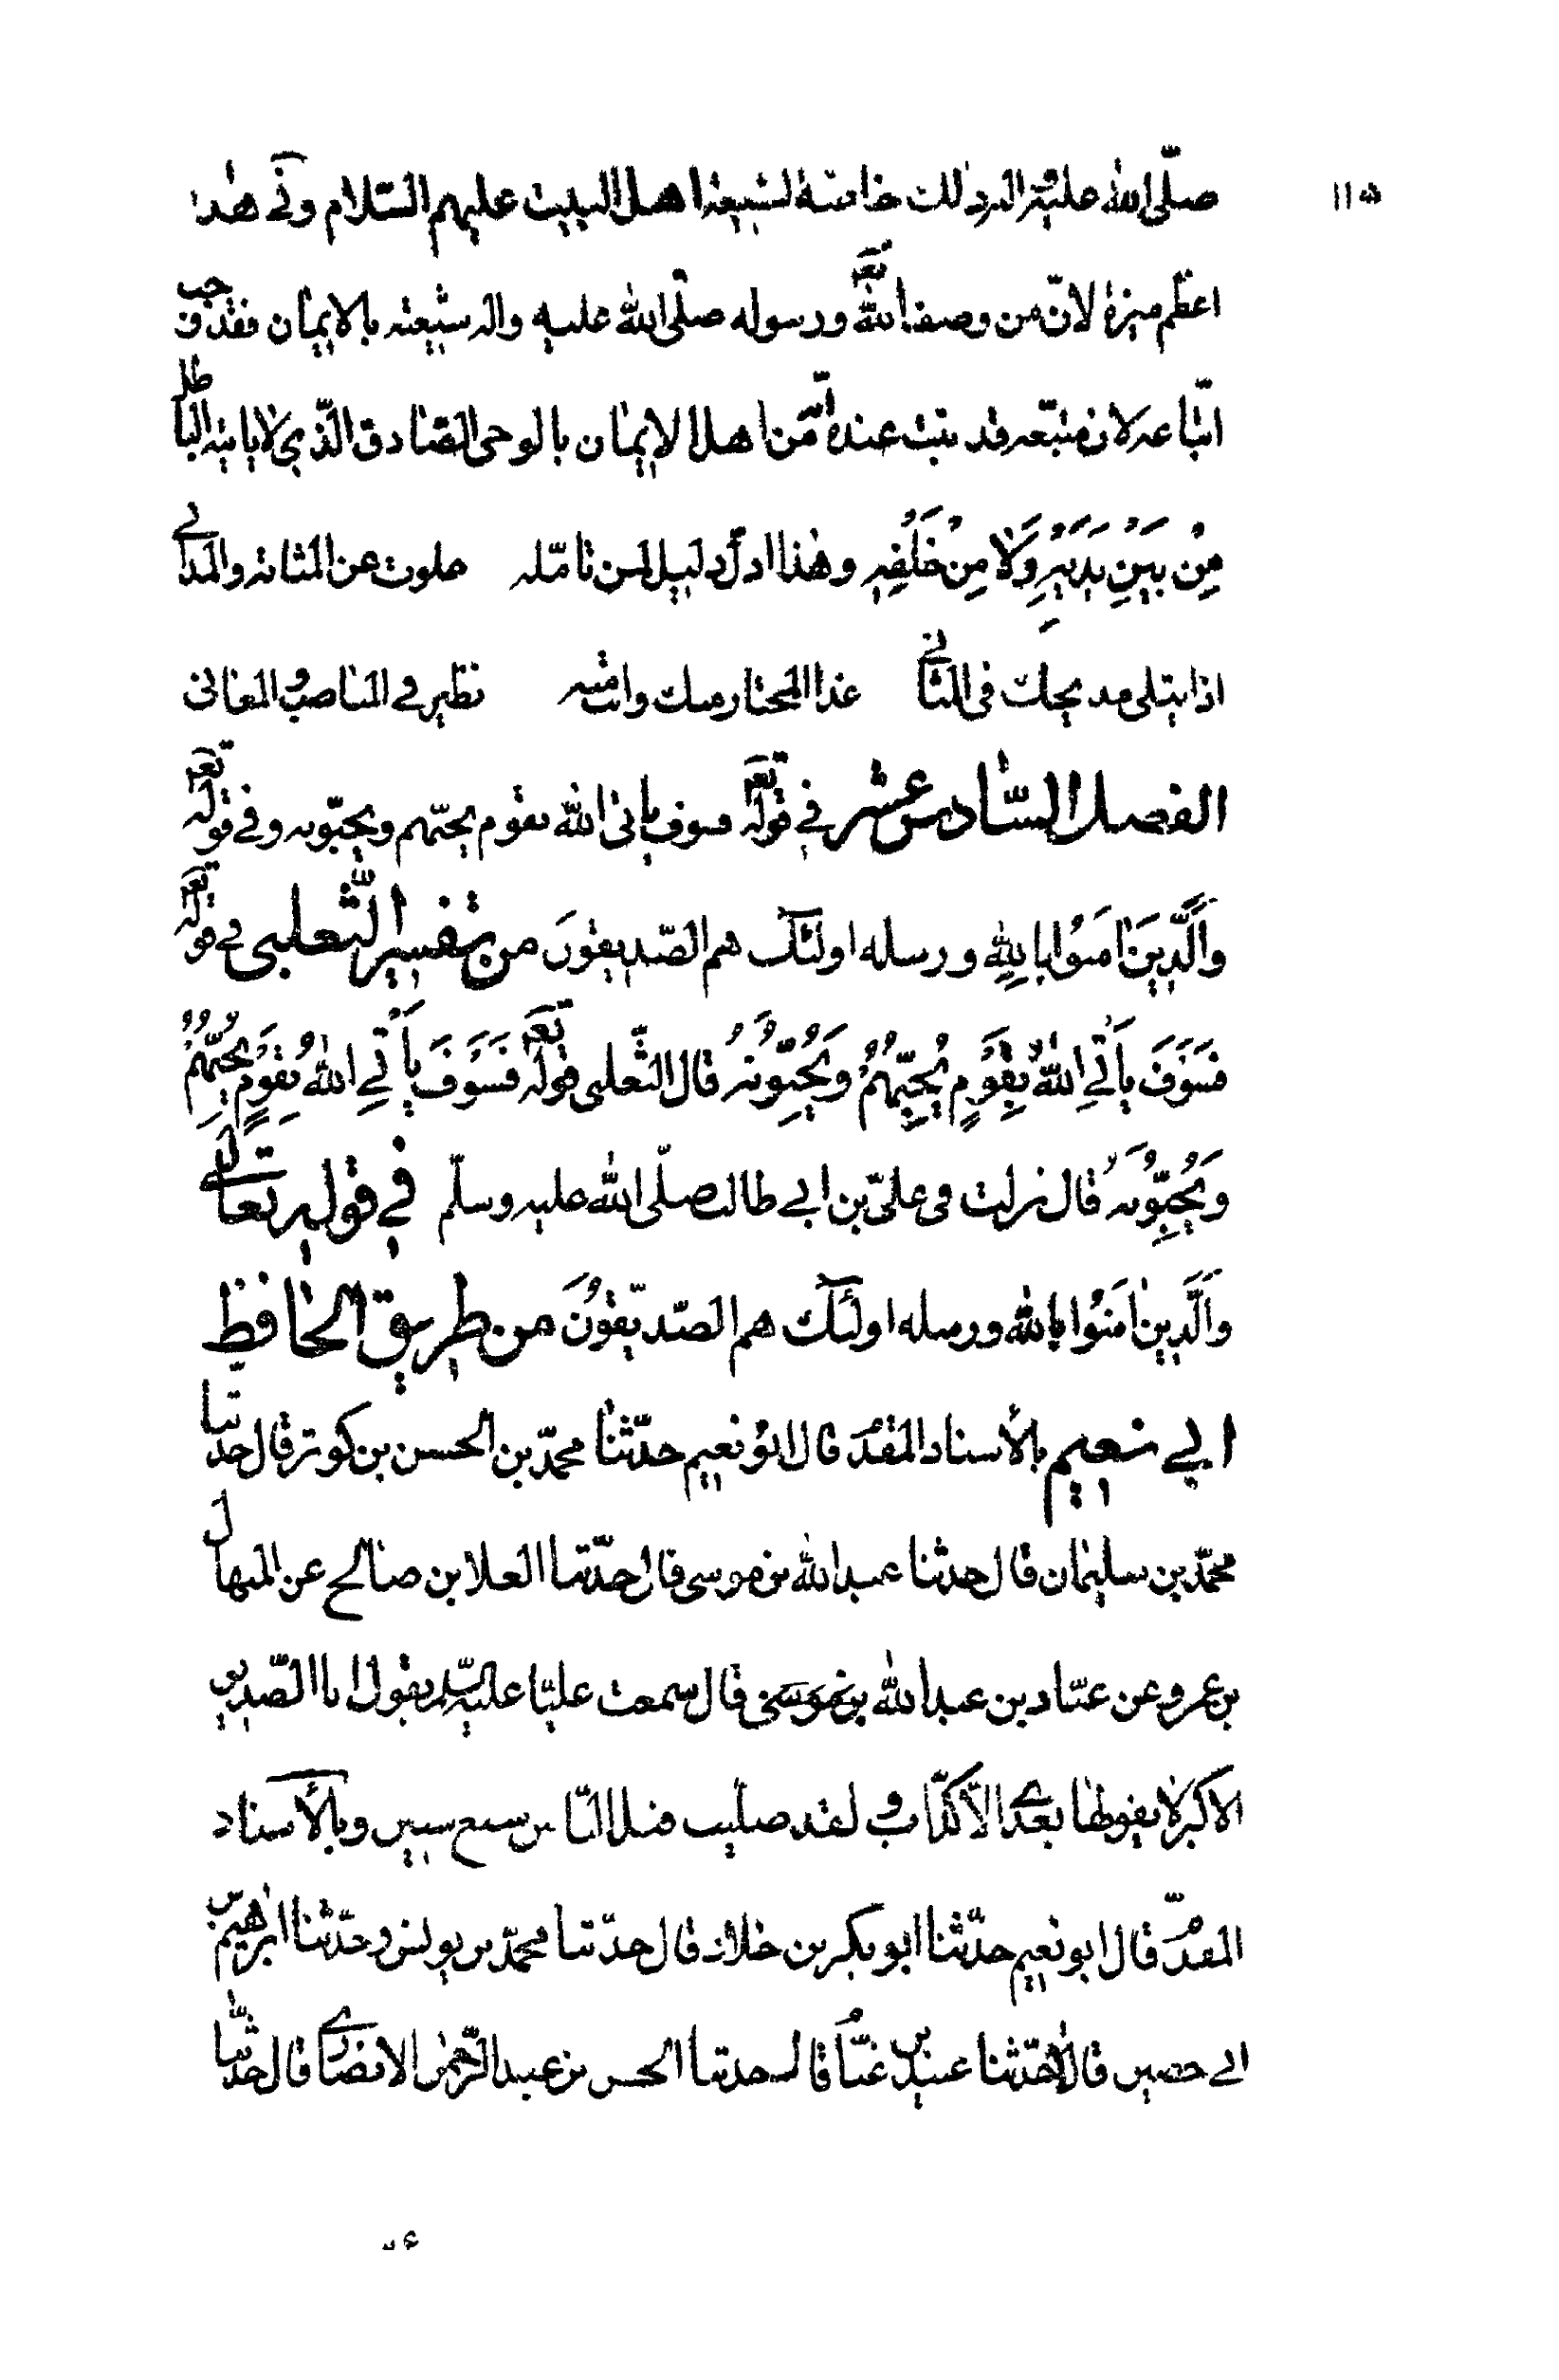 ١١٥
صلّى الله عليه واله ذلك خاصة لشيعة اهل البيت عليهم السّلام وفى هذا
اعظم ميزة لانّ من وصف الله تعه ورسوله صلّى الله عليه واله شيعته بالايمان فقد وجب
اتّباعه لان متبّعه قد ثبت عنده أنّه من اهل الايمان بالوحى الصّادق الّذي لا يأتيه الباطل
مِنْ بَيْنِ يَدَيْهِ وَلَا مِنْ خَلْفِهِ وهذا ادلّ دليل لمن تامّله علوت عن المثانة والمدانے
اذا يتلى مديحك فى المثانے غذا المختار منك وانت منه نظير في المناصب والمعانى
الفصل السّادس عشر في قوله تعه فسوف يأتى الله بقوم يحبّهم ويحبّونه وفي قوله تعه
وَالَّذِينَ اٰمَنُوا بِاللهِ ورسله اولئك هم الصّديقونَ من تفسير الثّعلبى في قوله تعه
فَسَوْفَ يَأْتِي اللهُ بِقَوْمٍ يُحِبُّهُمْ وَيُحِبُّونَهُ قال الثّعلبى قوله تعه فَسَوْفَ يَأْتِي اللهُ بِقَوْمٍ يُحِبُّهُمْ
وَيُحِبُّونَهُ قال نزلت فى علىّ بن ابي طالب صلّى الله عليه وسلّم في قوله تعالى
وَالَّذِينَ اٰمَنُوا بالله ورسله اولئك هم الصّديقونَ من طريق الحافظ
ابي نعيم بالأسناد المقدّم قال ابو نعيم حدّثنا محمّد بن الحسن بن كوثر قال حدثنا
محمّد بن سليمان قال حدثنا عبد الله بن موسى قال حدّثنا العلا بن صالح عن المنهال
بن عمرو عن عبّاد بن عبد الله بن موسى قال سمعت عليّا عليه السّلم يقول انا الصّديق
الاكبر لا يقولها بعدي الا كذّاب ولقد صليت قبل النّاس سبع سنين وبالأسناد
المقدّم قال ابو نعيم حدّثنا ابو بكر بن خلاد قال حدّثنا محمّد بن يونس وحدّثنا ابرهيم بن
ابي حصين قالا حدّثنا عبيد بن غنّام قال حدثنا الحسن بن عبد الرّحمٰن الانصاري قال حدّثنا